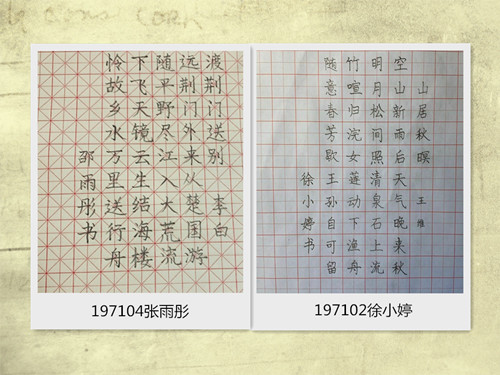 渡荆门送别 李白
远荆门外来从楚国游
随平野尽江入大荒流
下飞天镜云生结海楼
怜故乡水万里送行舟
邵雨彤书
197104张雨彤
山居秋暝 王维
空山新雨后天气晚来秋
明月松间照清泉石上流
竹喧归浣女莲动下渔舟
随意春芳歇王孙自可留
徐小婷书
197102徐小婷